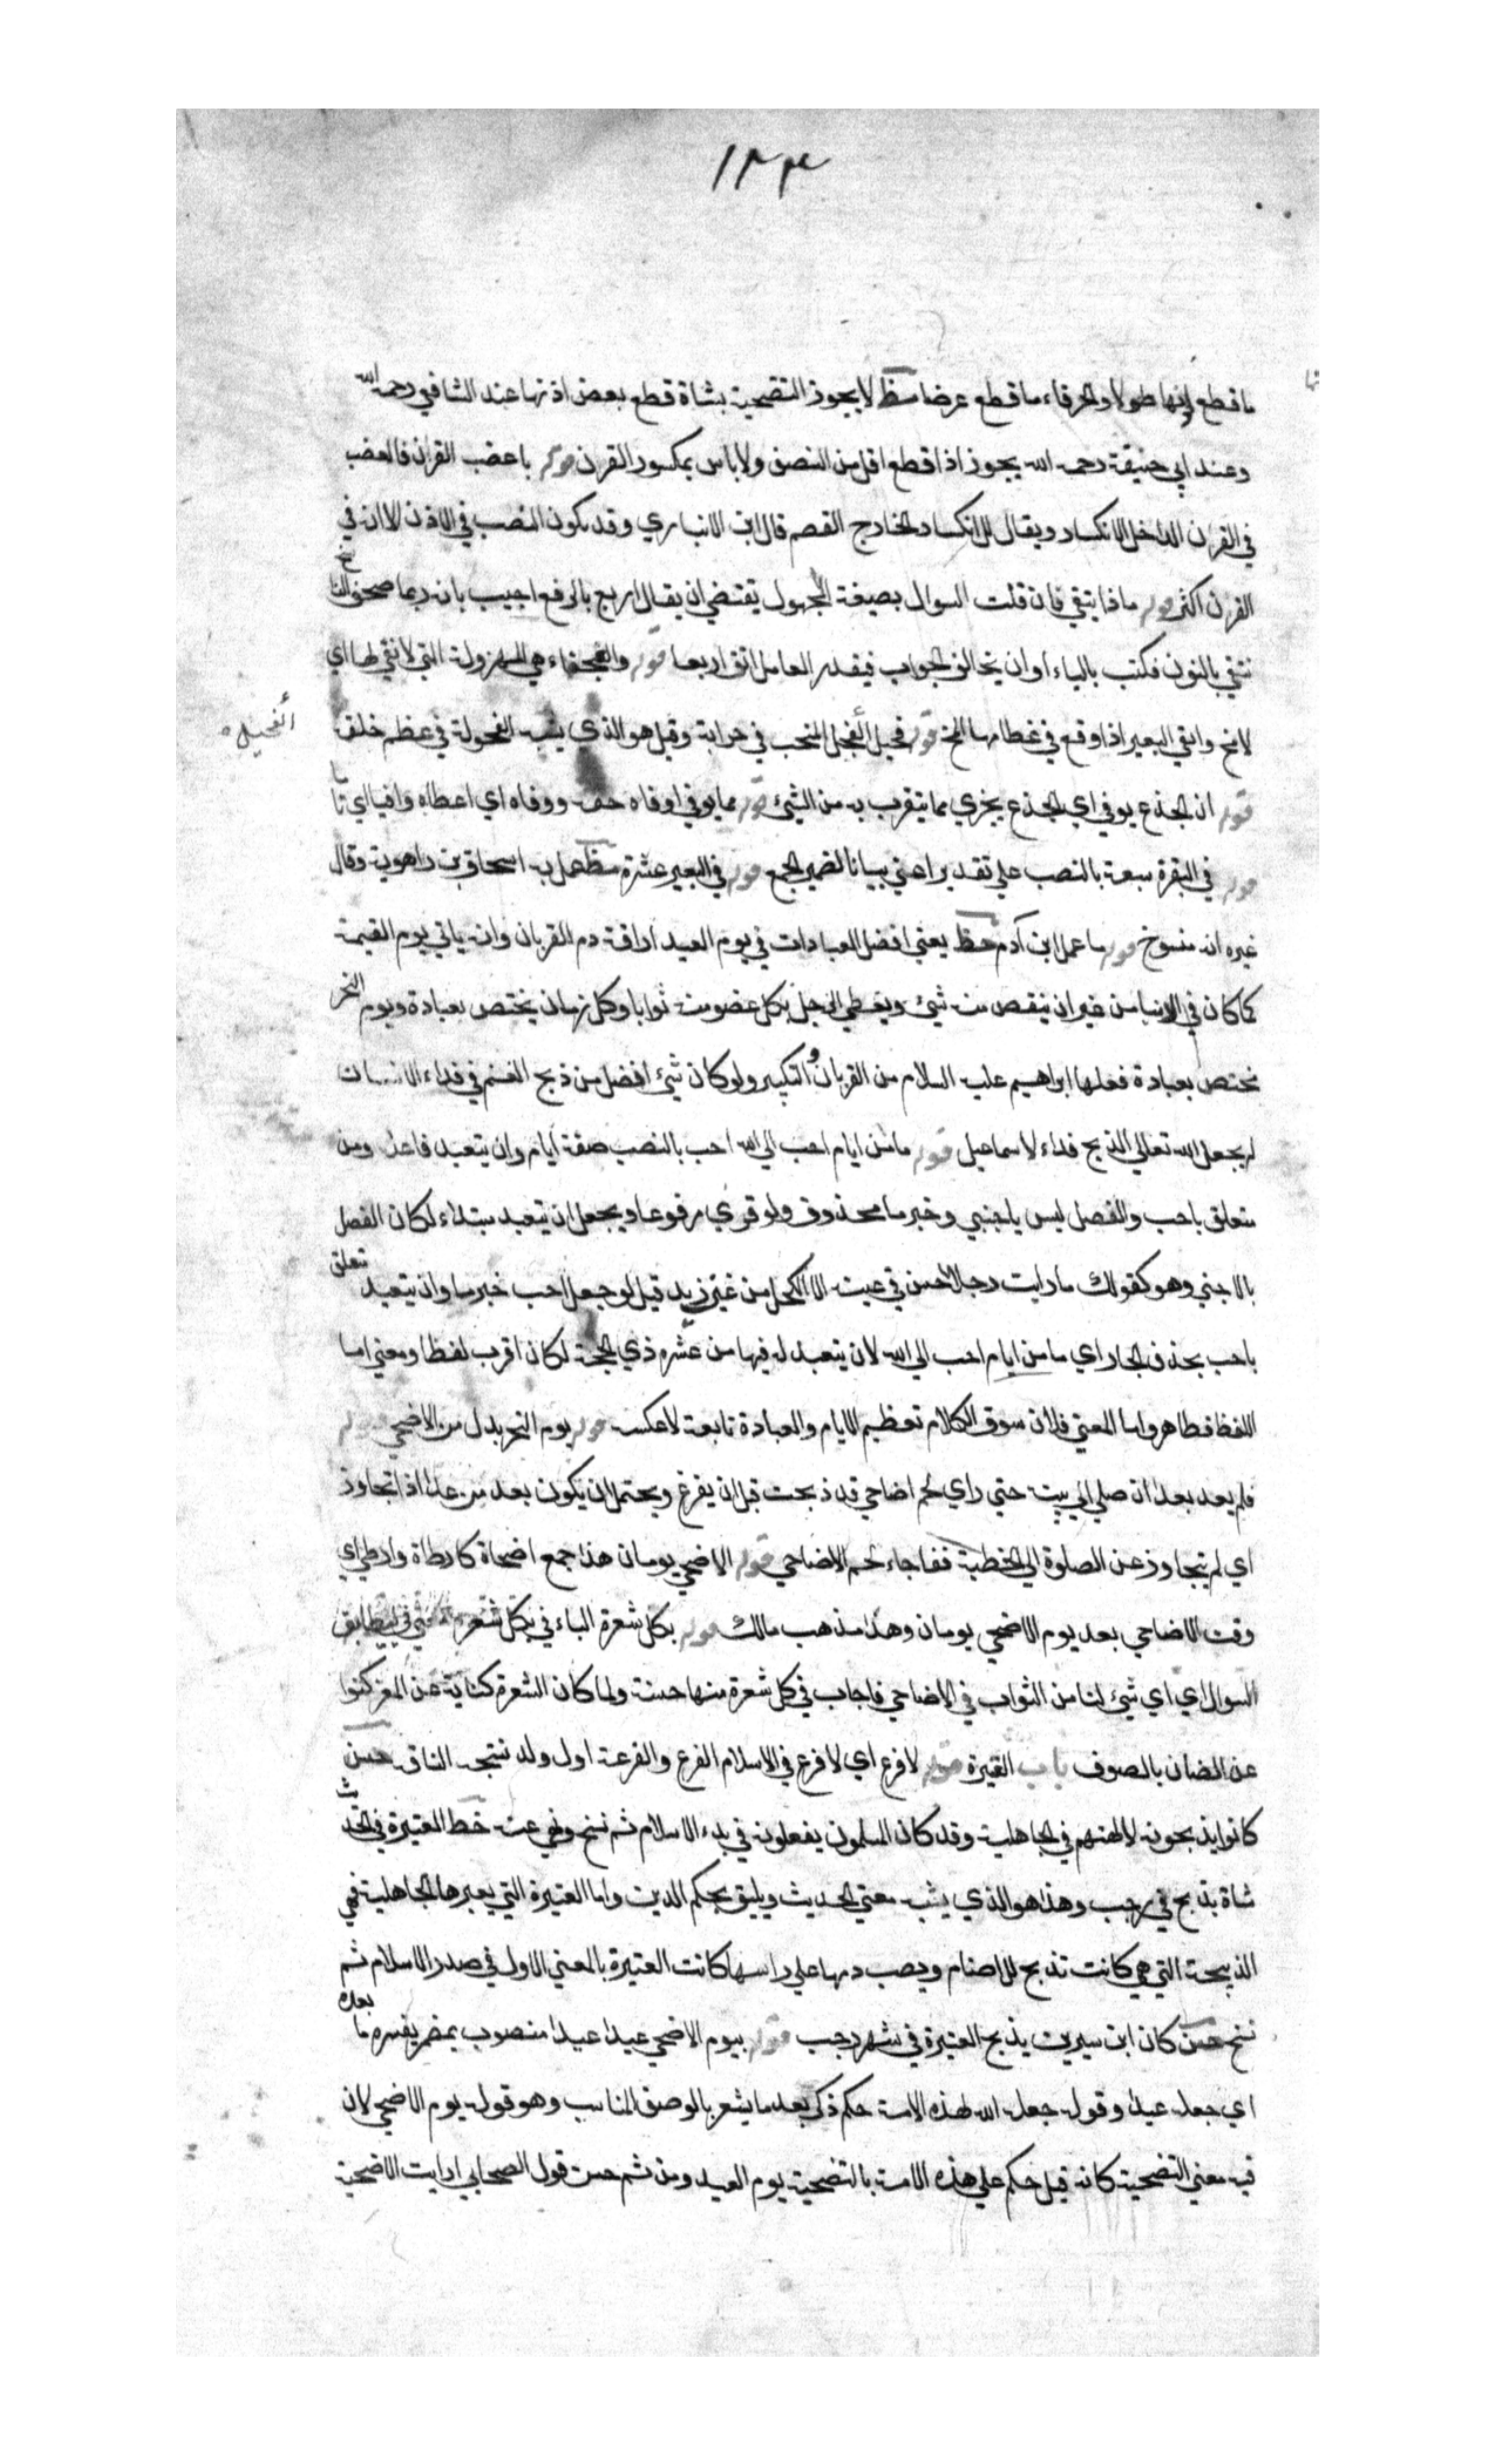 ١٣٣
ما قطع اذنها طولا والخرقاء ما قطع عرضا مظ لا يجوز التضحية بشاة قطع بعض اذنها عند الشافعي رحمه الله
وعند ابي حنيفة رحمه الله يجوز اذا قطع اقل من النصف ولا باس بمكسور القرن قوله باعضب القرن فالعضب
في القرن الداخل الانكسار ويقال للانكسار الخارج القصم قال ابن الانباري وقد يكون العضب في الاذن الا انه في
القرن اكثر قوله ماذا يتقي فان قلت السوال بصيغة المجهول يقتضي ان يقال اربع بالرفع اجيب بانه ربما صحف الناسخ
نتقي بالنون فكتب بالياء او ان يخالف الجواب فيقدر العامل اتق اربعا قوله والعجفاء هي المهزولة التي لا نقي لها اي
لا مخ وانقي البعير اذا وقع في عظامها المخ قوله فحيل الفحيل المنجب في ضرابه وقيل هو الذي يشبه الفحولة في عظم خلقه
الفحيل
قوله ان الجذع يوفي اي الجذع يجزي مما يتقرب به من الشيء قوله مما يوفي اوفاه حقه ووفاه اي اعطاه وافيا اي تاما
قوله في البقرة سبعة بالنصب علي تقدير اعني بيانا لضمير الجمع قوله في البعير عشرة مظ عمل به اسحاق بن راهويه وقال
غيره انه منسوخ قوله ما عمل ابن آدم مظ يعني افضل العبادات في يوم العيد اراقة دم القربان وانه ياتي يوم القيمة
كما كان في الدنيا من غير ان ينقص منه شيء ويعطي الرجل بكل عضو منه ثوابا وكل زمان يختص بعبادة ويوم النحر
مختص بعبادة فعلها ابراهيم عليه السلام من القربان والتكبير ولو كان شيء افضل من ذبح الغنم في فداء الانسان
لم يجعل الله تعالي الذبح فداء لاسماعيل قوله ما من ايام احب الي الله احب بالنصب صفة ايام وان يتعبد فاعله ومن
متعلق باحب والفصل ليس باجنبي وخبر ما محذوف ولو قري مرفوعا ويجعل ان يتعبد مبتداء لكان الفصل
بالاجنبي وهو كقولك ما رايت رجلا احسن في عينه الا الكحل من عين زيد قيل لو جعل احب خبر ما وان يتعبد متعلق
باحب بحذف الجار اي ما من ايام احب الي الله لان يتعبد له فيها من عشر ذي الحجة لكان اقرب لفظا ومعني اما
اللفظ فظاهر واما المعني فلان سوق الكلام تعظيم الايام والعبادة تابعة لا عكسه قوله يوم النحر بدل من الاضحي قوله
فلم يعد بعد ان صلي الي بيته حتي راي لحم اضاحي قد ذبحت قبل ان يفرغ ويحتمل ان يكون يعد من عدا اذا تجاوز
اي لم يتجاوز عن الصلوة الي الخطبة ففاجاء لحم الاضاحي قوله الاضحي يومان هذا جمع اضحاة كارطاة وارطي اي
وقت الاضاحي بعد يوم الاضحي يومان وهذا مذهب مالك قوله بكل شعرة الباء في بكل شعرة بمعني في ليطابق
السوال اي اي شيء لنا من الثواب في الاضاحي فاجاب في كل شعرة منها حسنة ولما كان الشعرة كناية عن المعز كنوا
عن الضان بالصوف باب العتيرة قوله لا فرع اي لا فرع في الاسلام الفرع والفرعة اول ولد تنتجه الناقة حسن
كانوا يذبحونه لالهتهم في الجاهلية وقد كان المسلمون يفعلونه في بدء الاسلام ثم نسخ ونهي عنه خط العتيرة في الحديث
شاة يذبح في رجب وهذا هو الذي يشبه معني الحديث ويليق بحكم الدين واما العتيرة التي يعبرها الجاهلية فهي
الذبيحة التي هي كانت تذبح للاصنام ويصب دمها علي راسها كانت العتيرة بالمعني الاول في صدر الاسلام ثم
نسخ حسن كان ابن سيرين يذبح العتيرة في شهر رجب قوله بيوم الاضحي عيدا عيدا منصوب بمضمر يفسره ما بعده
اي جعله عيدا وقوله جعله الله لهذه الامة حكم ذكر بعد ما يشعر بالوصف المناسب وهو قوله يوم الاضحي لان
فيه معني التضحية كانه قيل حكم علي هذه الامة بالتضحية يوم العيد ومن ثم حسن قول الصحابي ارايت الاضحية